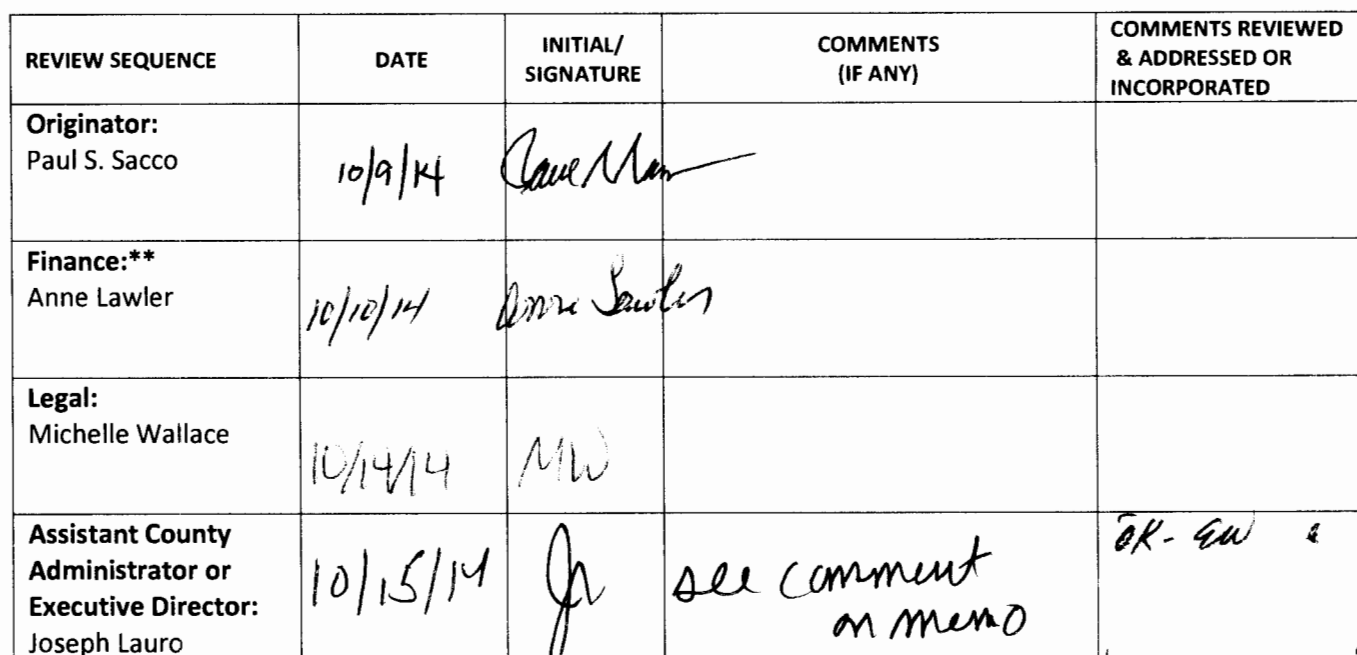 REVIEW SEQUENCE
DATE
INITIAL/
SIGNATURE
COMMENTS
(IF ANY)
COMMENTS REVIEWED
& ADDRESSED OR
INCORPORATED
Originator:
Paul S. Sacco
10/9/14
Finance:**
Anne Lawler
10/10/14
Anne Lawler
Legal:
Michelle Wallace
10/14/14
MW
Assistant County
Administrator or
Executive Director:
Joseph Lauro
10/15/14
see comment
on memo
OK-